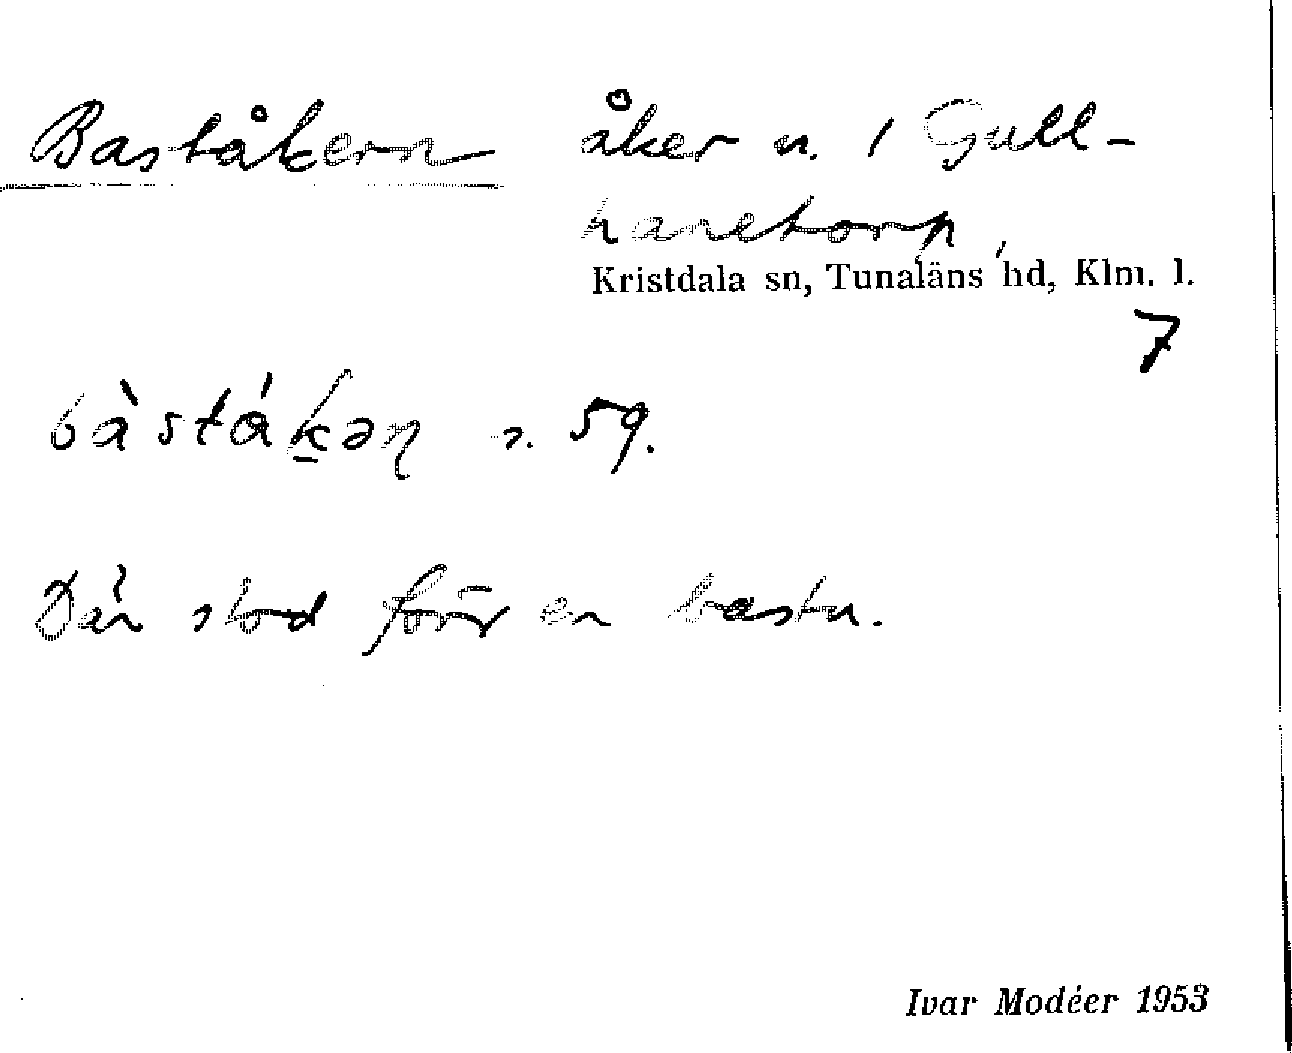 Baståkern åker n. 1 Gull-
hanetorp,
Kristdala sn, Tunaläns hd, Klm. l.
7
bàstákəɳ s. 59.
Där stod förr en bastu.
Ivar Modéer 1953